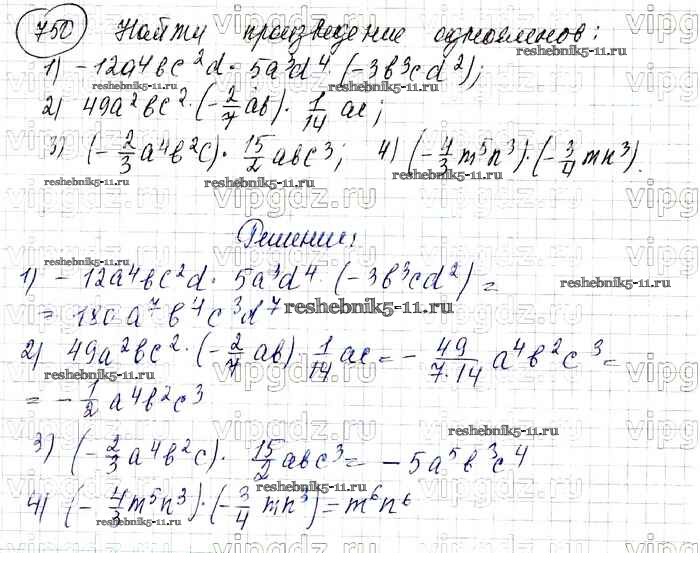 750 Найти произведение одночленов:
1) -12a⁴bc²d · 5a³d⁴ · (-3b³cd²);
2) 49a²bc² · (-2/7 ab) · 1/14 ac;
3) (-2/3 a⁴b²c) · 15/2 abc³; 4) (-4/3 m⁵n³) · (-3/4 mn³).
Решение:
1) -12a⁴bc²d · 5a³d⁴ · (-3b³cd²) =
= 180a⁷b⁴c³d⁷
2) 49a²bc² · (-2/7 ab) 1/14 ac = - 49/7·14 a⁴b²c³ =
= -1/2 a⁴b²c³
3) (-2/3 a⁴b²c) · 15/2 abc³ = -5a⁵b³c⁴
4) (-4/3 m⁵n³) · (-3/4 mn³) = m⁶n⁶
reshebnik5-11.ru
vipgdz.ru